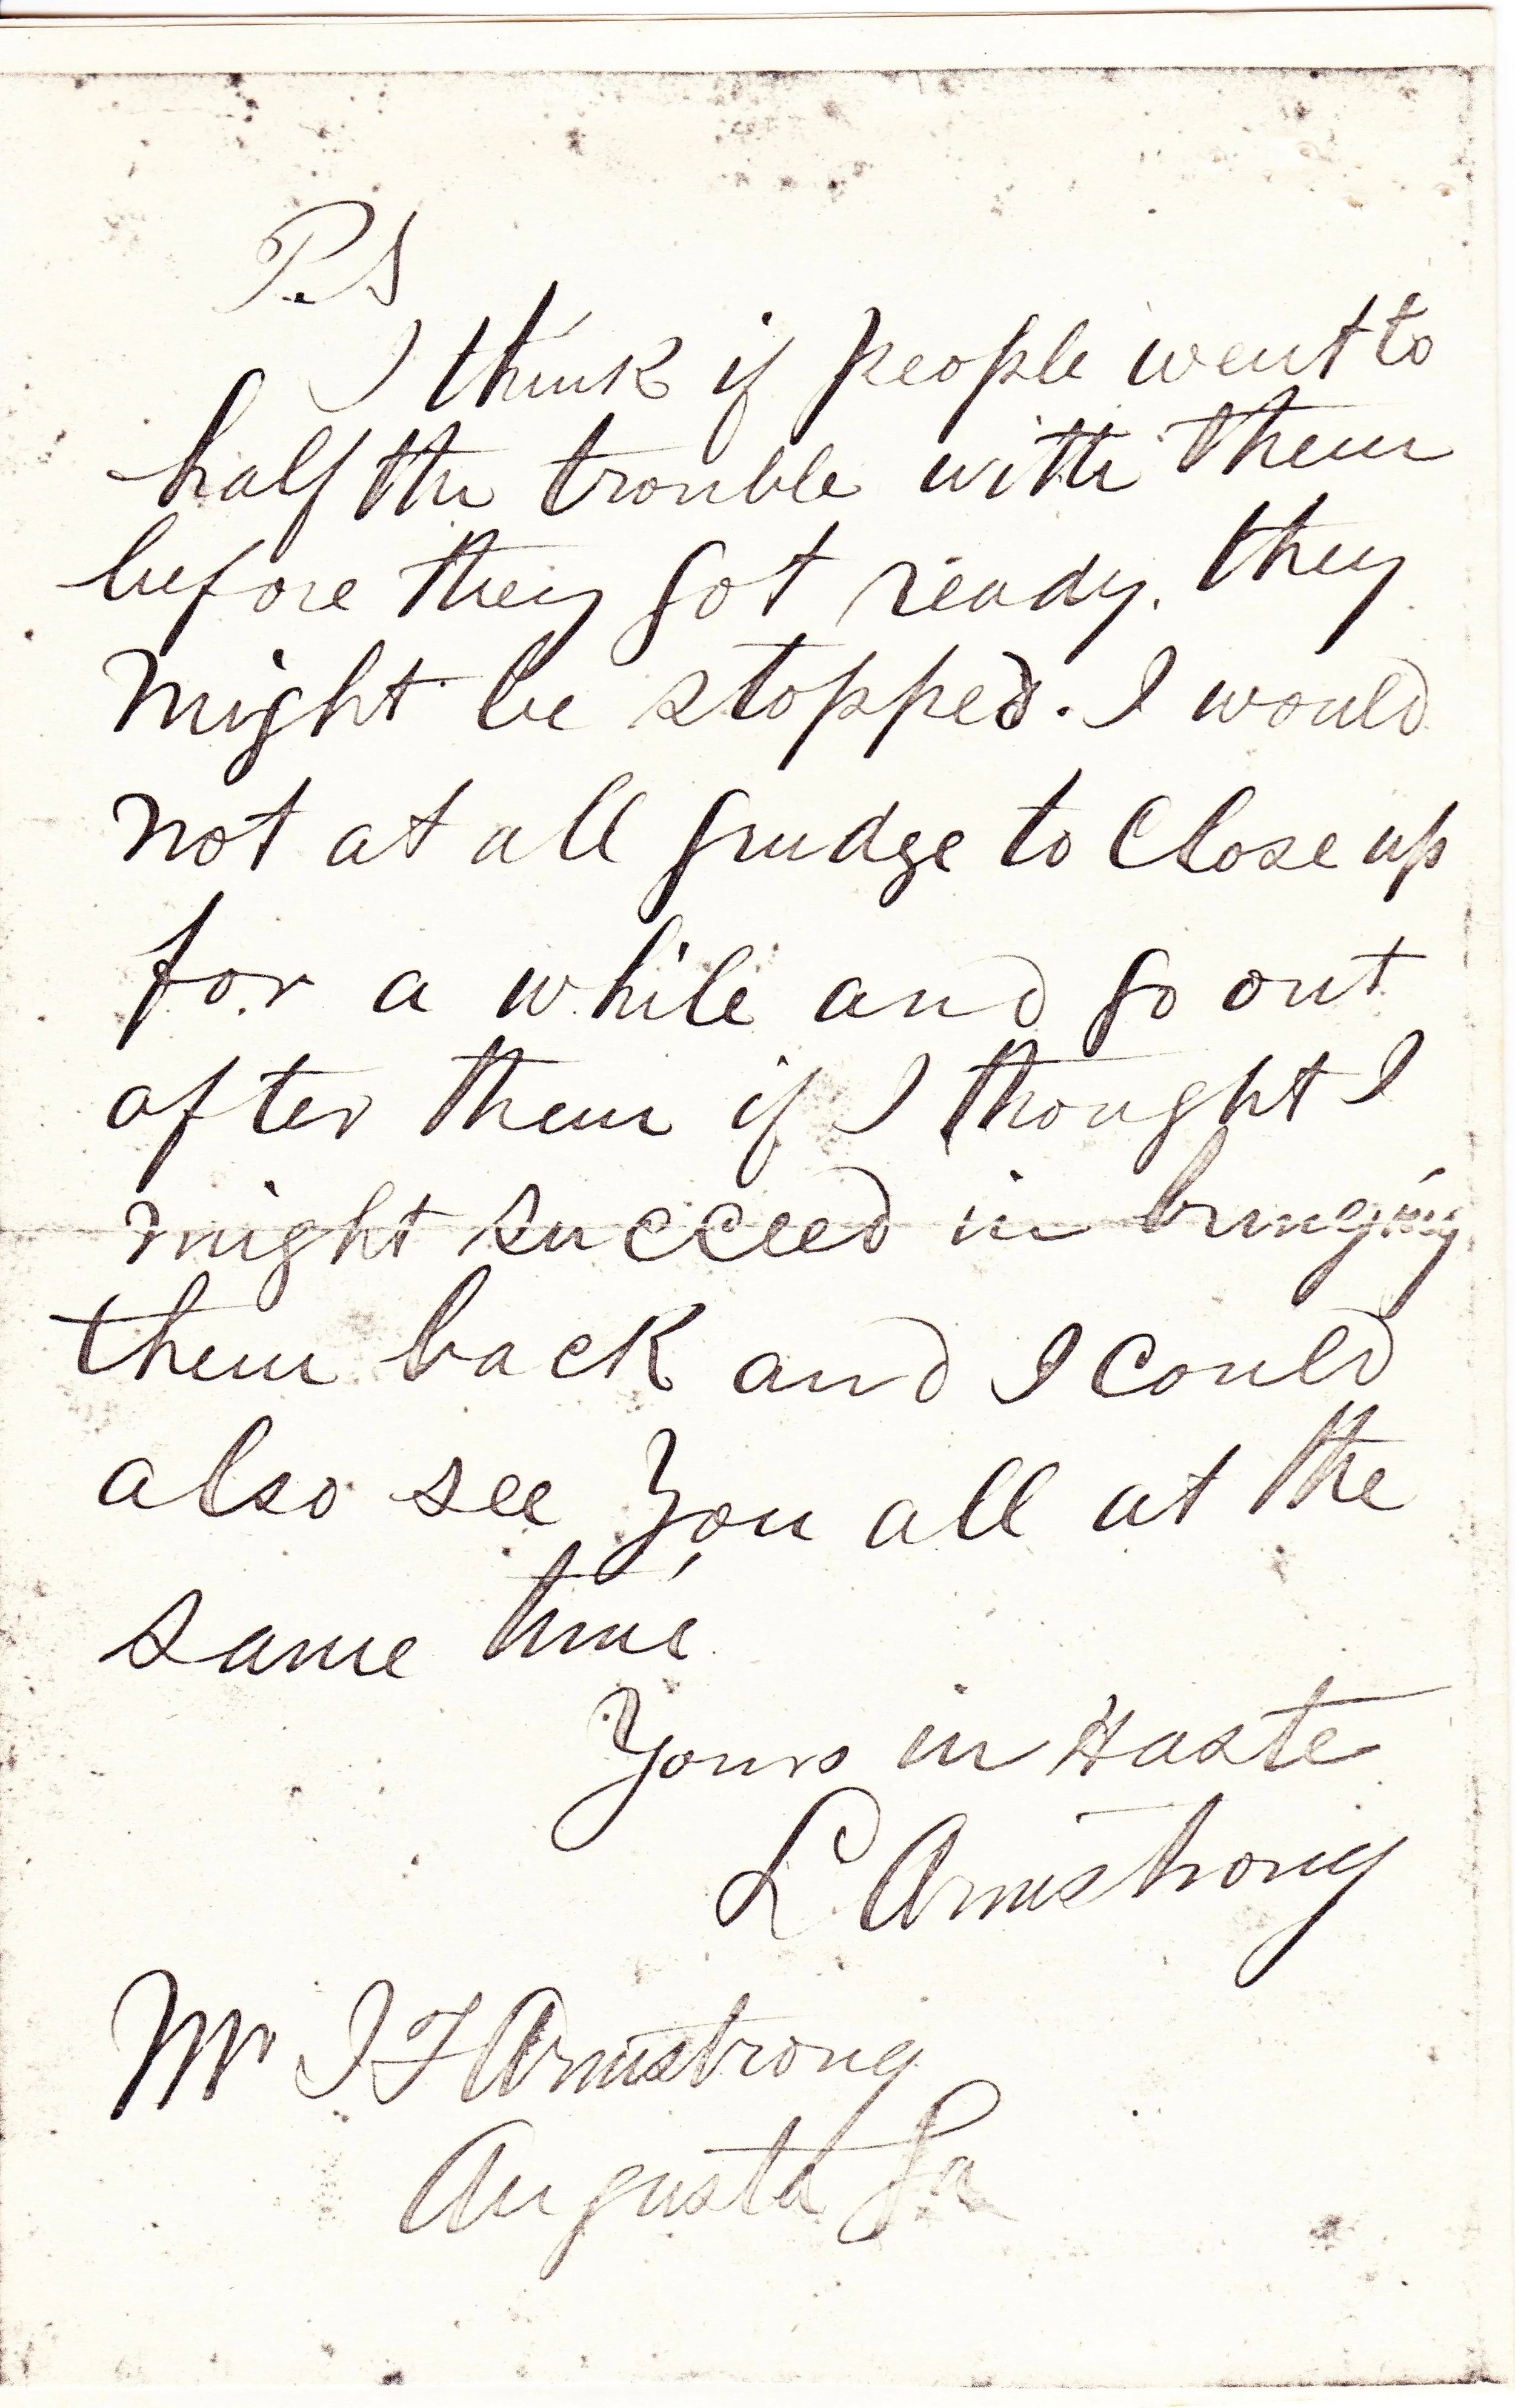 P.S
I think if people went to
half the trouble with them
before they got ready. they
might be stopped. I would
not at all grudge to Close up
for a while and go out
after them if I thought I
might succeed in bringing
them back and I could
also see You all at the
same time
Yours in Haste
L Armstrong
Mr I F Armstrong
Augusta Ga